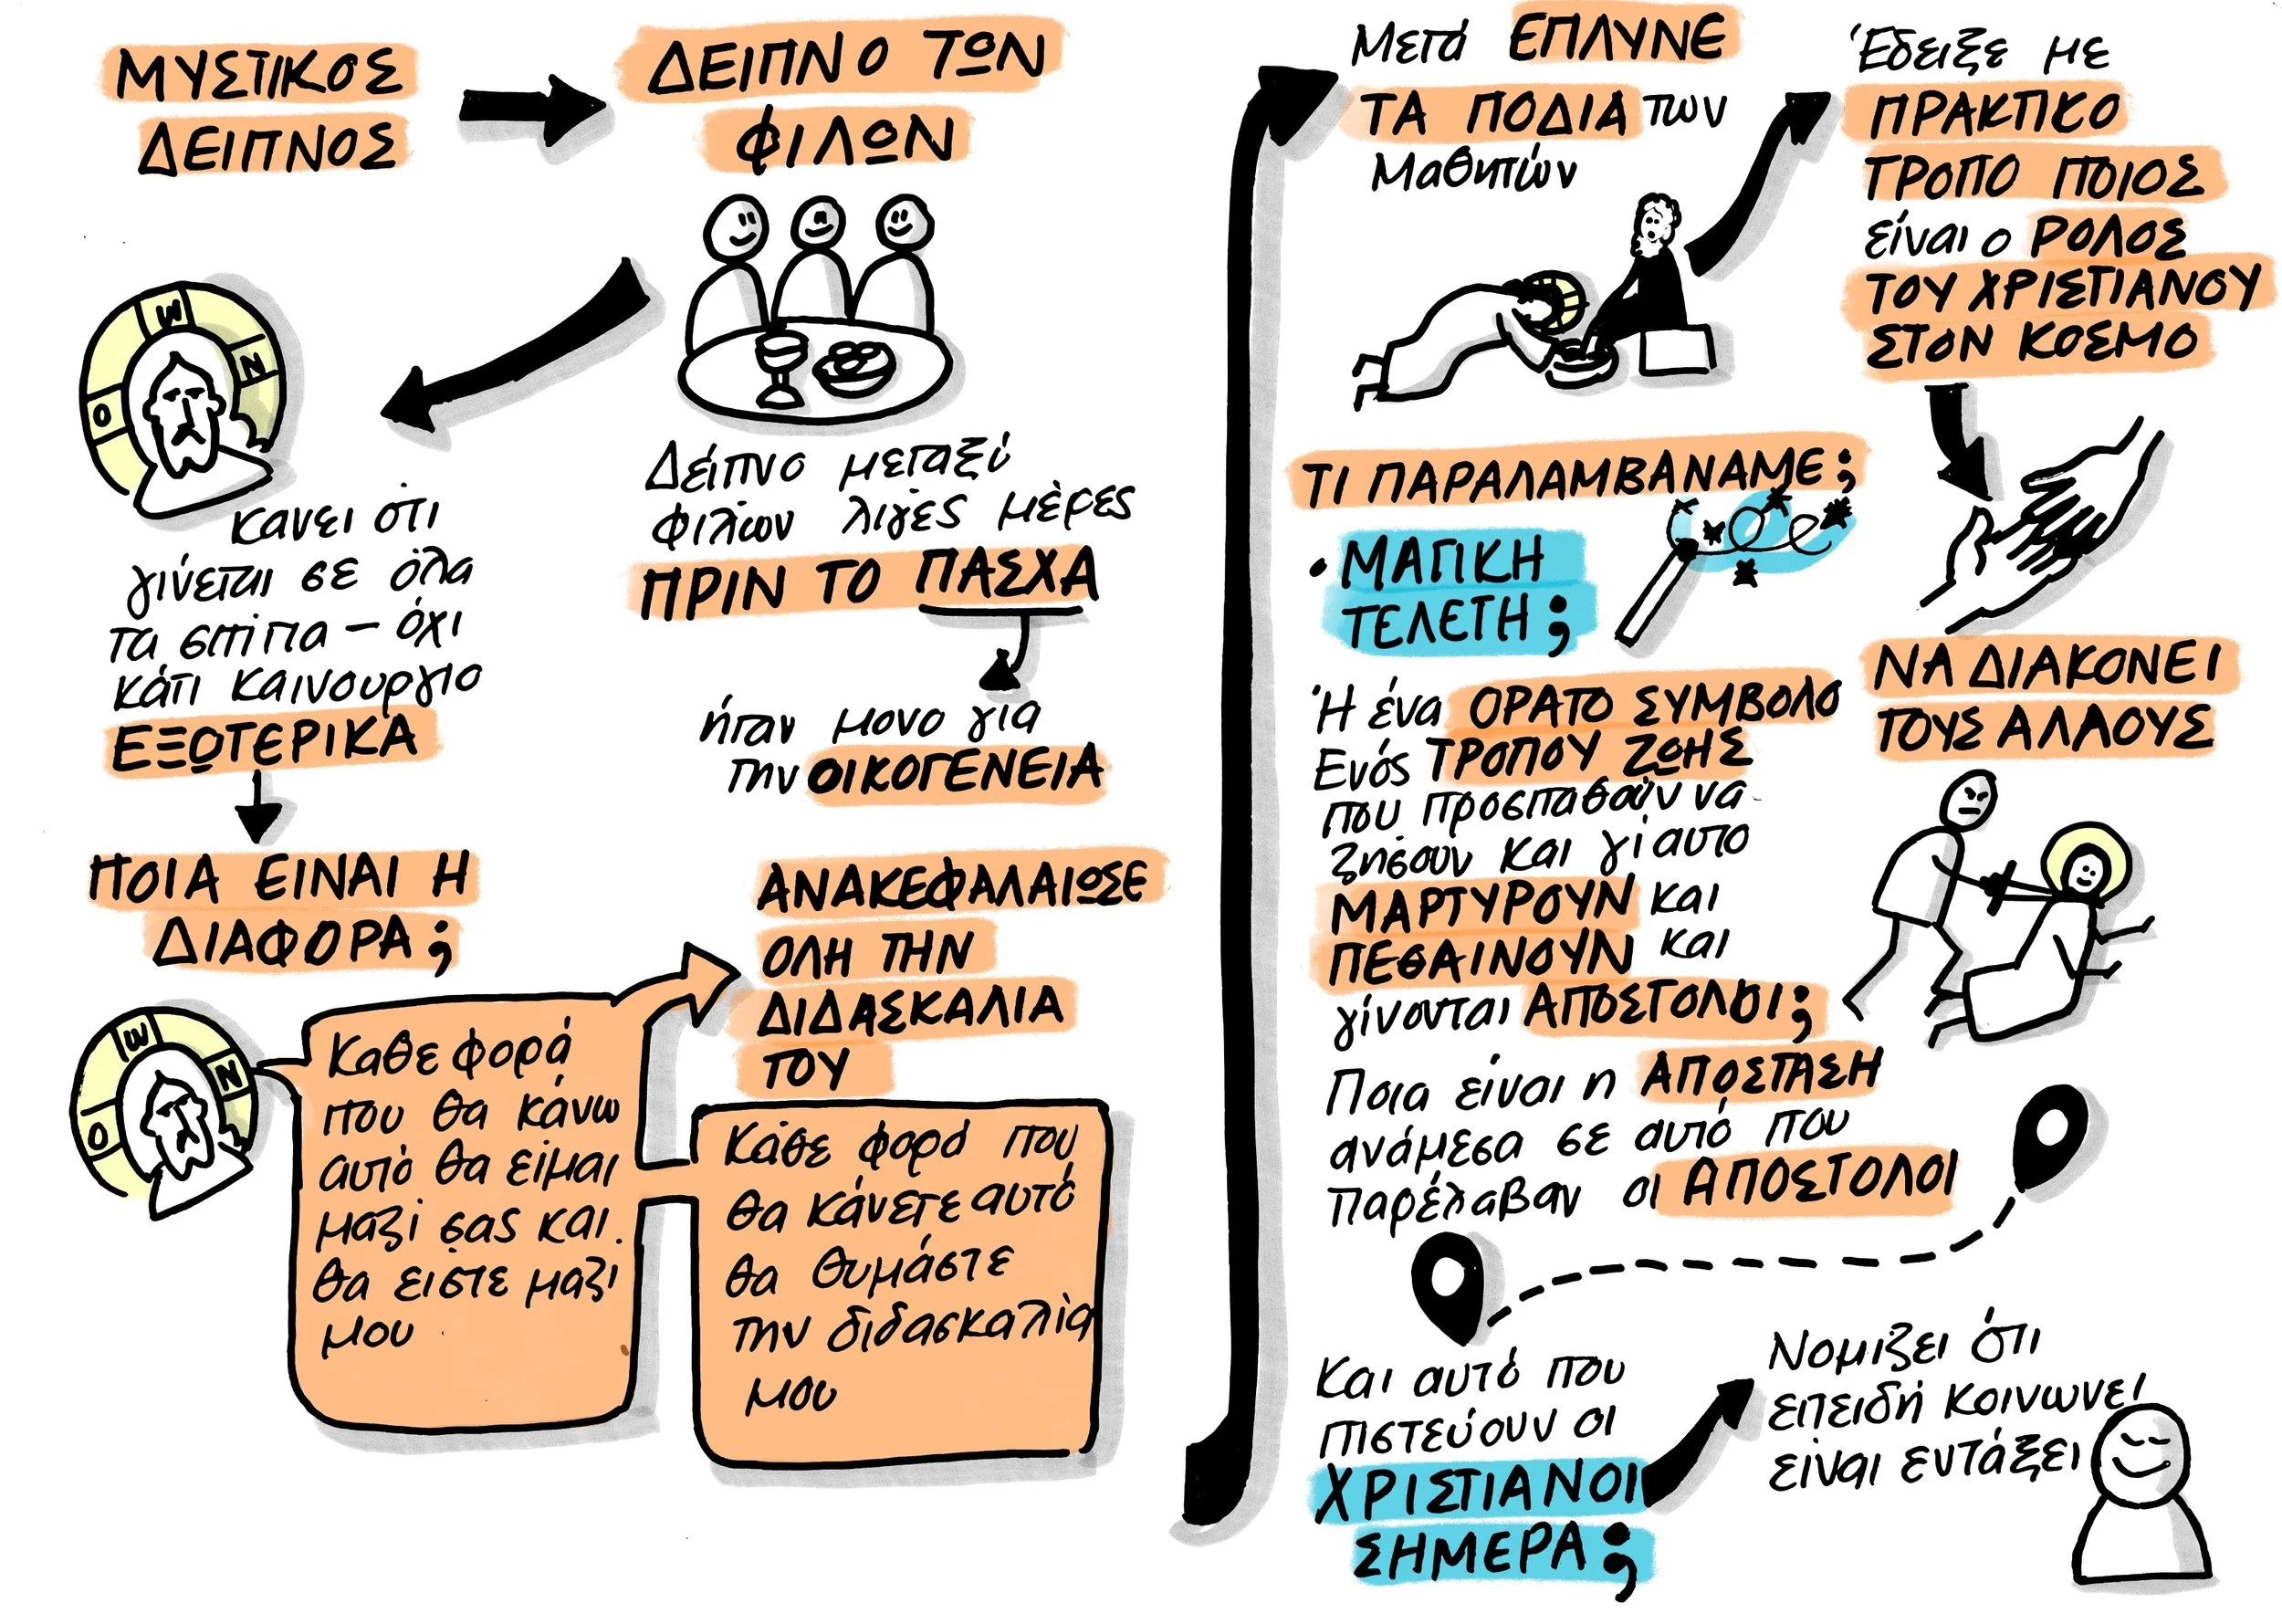 ΜΥΣΤΙΚΟΣ
ΔΕΙΠΝΟΣ
ΔΕΙΠΝΟ ΤΩΝ
ΦΙΛΩΝ
Δείπνο μεταξύ
φιλων λιγες μέρες
ΠΡΙΝ ΤΟ ΠΑΣΧΑ
ήταν μονο για
την ΟΙΚΟΓΕΝΕΙΑ
Ο Ω Ν
κανει ότι
γίνεται σε όλα
τα σπίτια – όχι
κάτι καινουργιο
ΕΞΩΤΕΡΙΚΑ
ΠΟΙΑ ΕΙΝΑΙ Η
ΔΙΑΦΟΡΑ;
Ο Ω Ν
Καθε φορά
που θα κάνω
αυτό θα είμαι
μαζί σας και
θα ειστε μαζι
μου
ΑΝΑΚΕΦΑΛΑΙΩΣΕ
ΟΛΗ ΤΗΝ
ΔΙΔΑΣΚΑΛΙΑ
ΤΟΥ
Κάθε φορά που
θα κάνετε αυτό
θα θυμάστε
την διδασκαλία
μου
Μετά ΕΠΛΥΝΕ
ΤΑ ΠΟΔΙΑ των
Μαθητών
Έδειξε με
ΠΡΑΚΤΙΚΟ
ΤΡΟΠΟ ΠΟΙΟΣ
είναι ο ΡΟΛΟΣ
ΤΟΥ ΧΡΙΣΤΙΑΝΟΥ
ΣΤΟΝ ΚΟΣΜΟ
ΝΑ ΔΙΑΚΟΝΕΙ
ΤΟΥΣ ΑΛΛΟΥΣ
ΤΙ ΠΑΡΑΛΑΜΒΑΝΑΜΕ;
• ΜΑΓΙΚΗ
ΤΕΛΕΤΗ;
Ή ένα ΟΡΑΤΟ ΣΥΜΒΟΛΟ
Ενός ΤΡΟΠΟΥ ΖΩΗΣ
που προσπαθούν να
ζησουν και γί αυτο
ΜΑΡΤΥΡΟΥΝ και
ΠΕΘΑΙΝΟΥΝ και
γίνονται ΑΠΟΣΤΟΛΟΙ;
Ποια είναι η ΑΠΟΣΤΑΣΗ
ανάμεσα σε αυτό που
παρέλαβαν οι ΑΠΟΣΤΟΛΟΙ
Και αυτό που
πιστεύουν οι
ΧΡΙΣΤΙΑΝΟΙ
ΣΗΜΕΡΑ;
Νομιζει ότι
επειδή κοινωνεί
είναι εντάξει